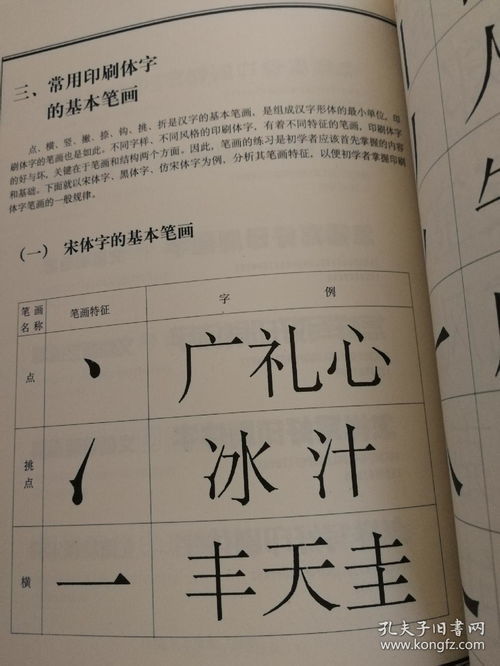 三、常用印刷体字
的基本笔画
点、横、竖、撇、捺、钩、挑、折是汉字的基本笔画，是组成汉字形体的最小单位，印
刷体字的笔画也是如此。不同字样、不同风格的印刷体字，有着不同特征的笔画，印刷体字
的好与坏，关键在于笔画和结构两个方面。因此，笔画的练习是初学者应该首先掌握的内容
和基础。下面就以宋体字、黑体字、仿宋体字为例，分析其笔画特征，以便初学者掌握印刷
体字笔画的一般规律。
（一） 宋体字的基本笔画
笔画名称 笔画特征 字例
点 丶 广礼心
挑点 冰汁
横 一 丰天圭
孔夫子旧书网
www.kongfz.com